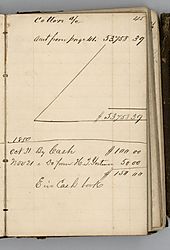 Cotton a/c 41
Amt from page 41. 53758 39
$ 53758 39
1850
Oct 31 By Cash $ 100 00
Nov 21 " Do from H. T. 50 00
$ 150 00
Cash book